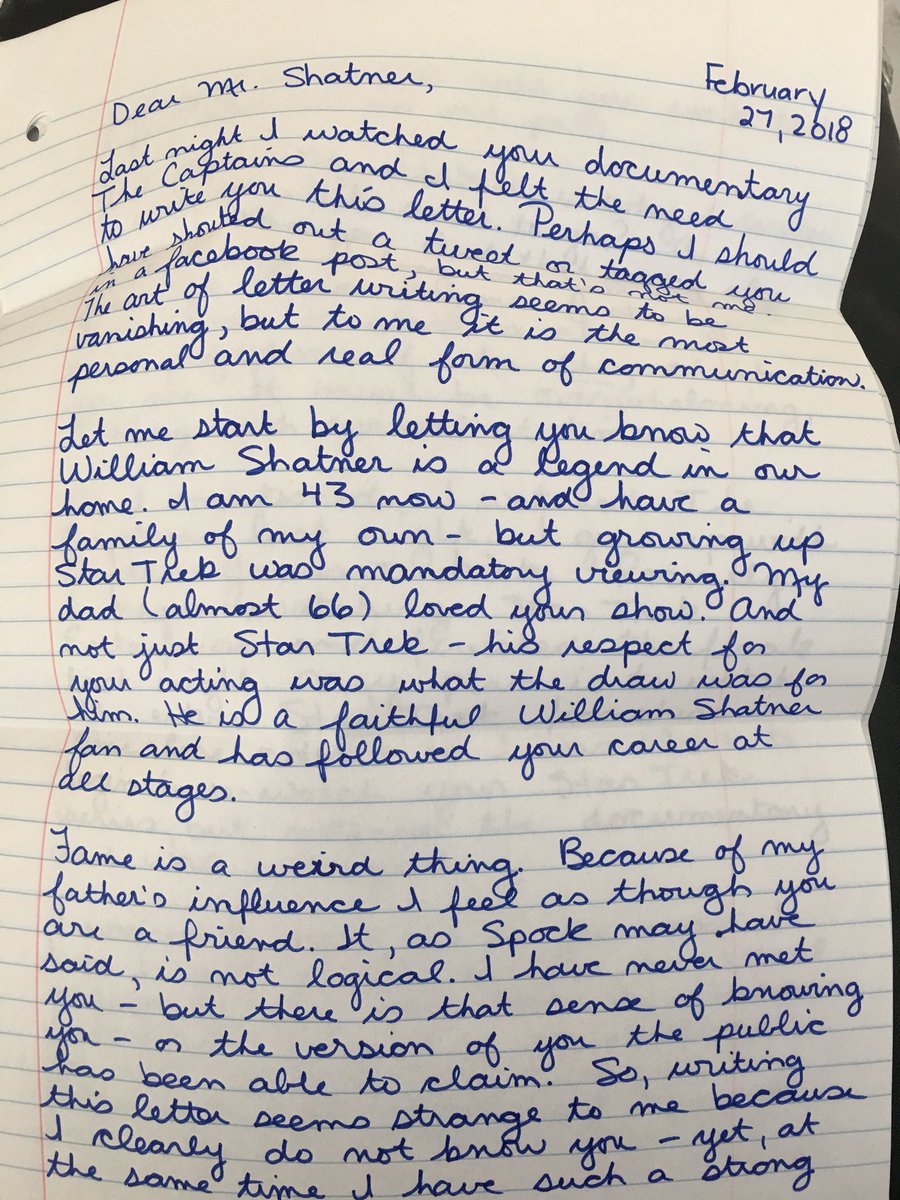 February
27, 2018
Dear Mr. Shatner,
Last night I watched your documentary
The Captains and I felt the need
to write you this letter. Perhaps I should
have shouted out a tweet or tagged you
in a facebook post, but that's not me.
The art of letter writing seems to be
vanishing, but to me it is the most
personal and real form of communication.
Let me start by letting you know that
William Shatner is a legend in our
home. I am 43 now - and have a
family of my own - but growing up
Star Trek was mandatory viewing. My
dad (almost 66) loved your show. And
not just Star Trek - his respect for
your acting was what the draw was for
him. He is a faithful William Shatner
fan and has followed your career at
all stages.
Fame is a weird thing. Because of my
father's influence I feel as though you
are a friend. It, as Spock may have
said, is not logical. I have never met
you - but there is that sense of knowing
you - or the version of you the public
has been able to claim. So, writing
this letter seems strange to me because
I clearly do not know you - yet, at
the same time I have such a strong